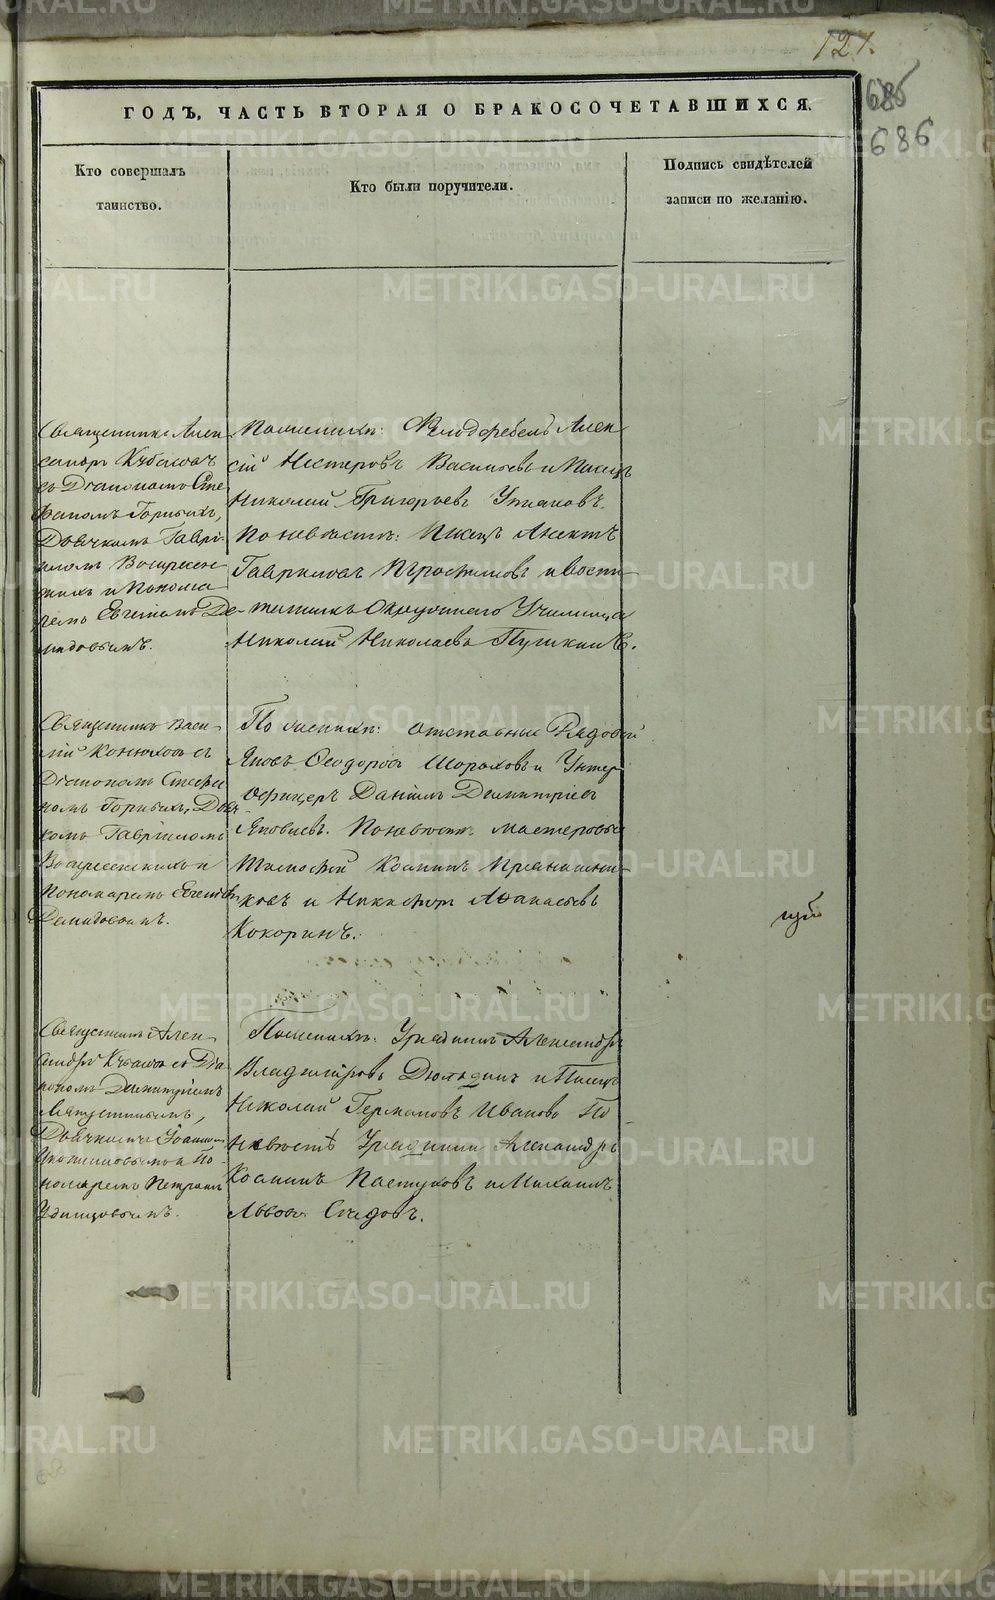 121.
686
686
ГОДЪ, ЧАСТЬ ВТОРАЯ О БРАКОСОЧЕТАВШИХСЯ.
Кто совершалъ
таинство.
Кто были поручители.
Подпись свидѣтелей
записи по желанію.
Священникъ Алек
сандръ
съ Діакономъ Сте
фаномъ Горныхъ,
Дьячкомъ Гаврі
иломъ Воскресен
скимъ и Понома
ремъ Евгеніемъ Де
мидовымъ.
По женихѣ: Фельдфебель Алек
сѣй Нестеровъ Васильевъ и Писецъ
Николай Григорьевъ
По невѣстѣ: Писецъ
Гавриловъ и воспи
Окружнаго Училища
Николай Николаевъ Пушкинъ.
Священникъ Васи
лій Конюховъ съ
Діакономъ Стефа
номъ Горныхъ, Дьяч
комъ Гавріиломъ
Воскресенскимъ и
Пономаремъ Евгеніемъ
Демидовымъ.
По женихѣ: отставные Рядовой
Яковъ Ѳеодоровъ Шораховъ и Унтер
Офицеръ Даніилъ Димитріевъ
Яковлевъ. По невѣстѣ мастеровые
Тимофѣй Козминъ Прянишни
ковъ и Никифоръ Аѳанасьевъ
Кокоринъ.
Священникъ Алек
сандръ съ Діа
кономъ Димитріемъ
Дьячкомъ Іоанномъ
и По
номаремъ Петромъ
Удинцовымъ.
По женихѣ: Урядникъ Александръ
Владиміровъ Дюлдинъ и Писецъ
Николай Германовъ Ивановъ По
невѣстѣ Урядники Александръ
Козминъ Пастуховъ и Михаилъ
Львовъ Слѣдовъ.
METRIKI.GASO-URAL.RU